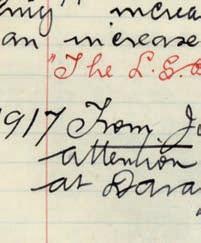 ing" increa
an increase
"The L.S.
1917 From J
attention
at Dara